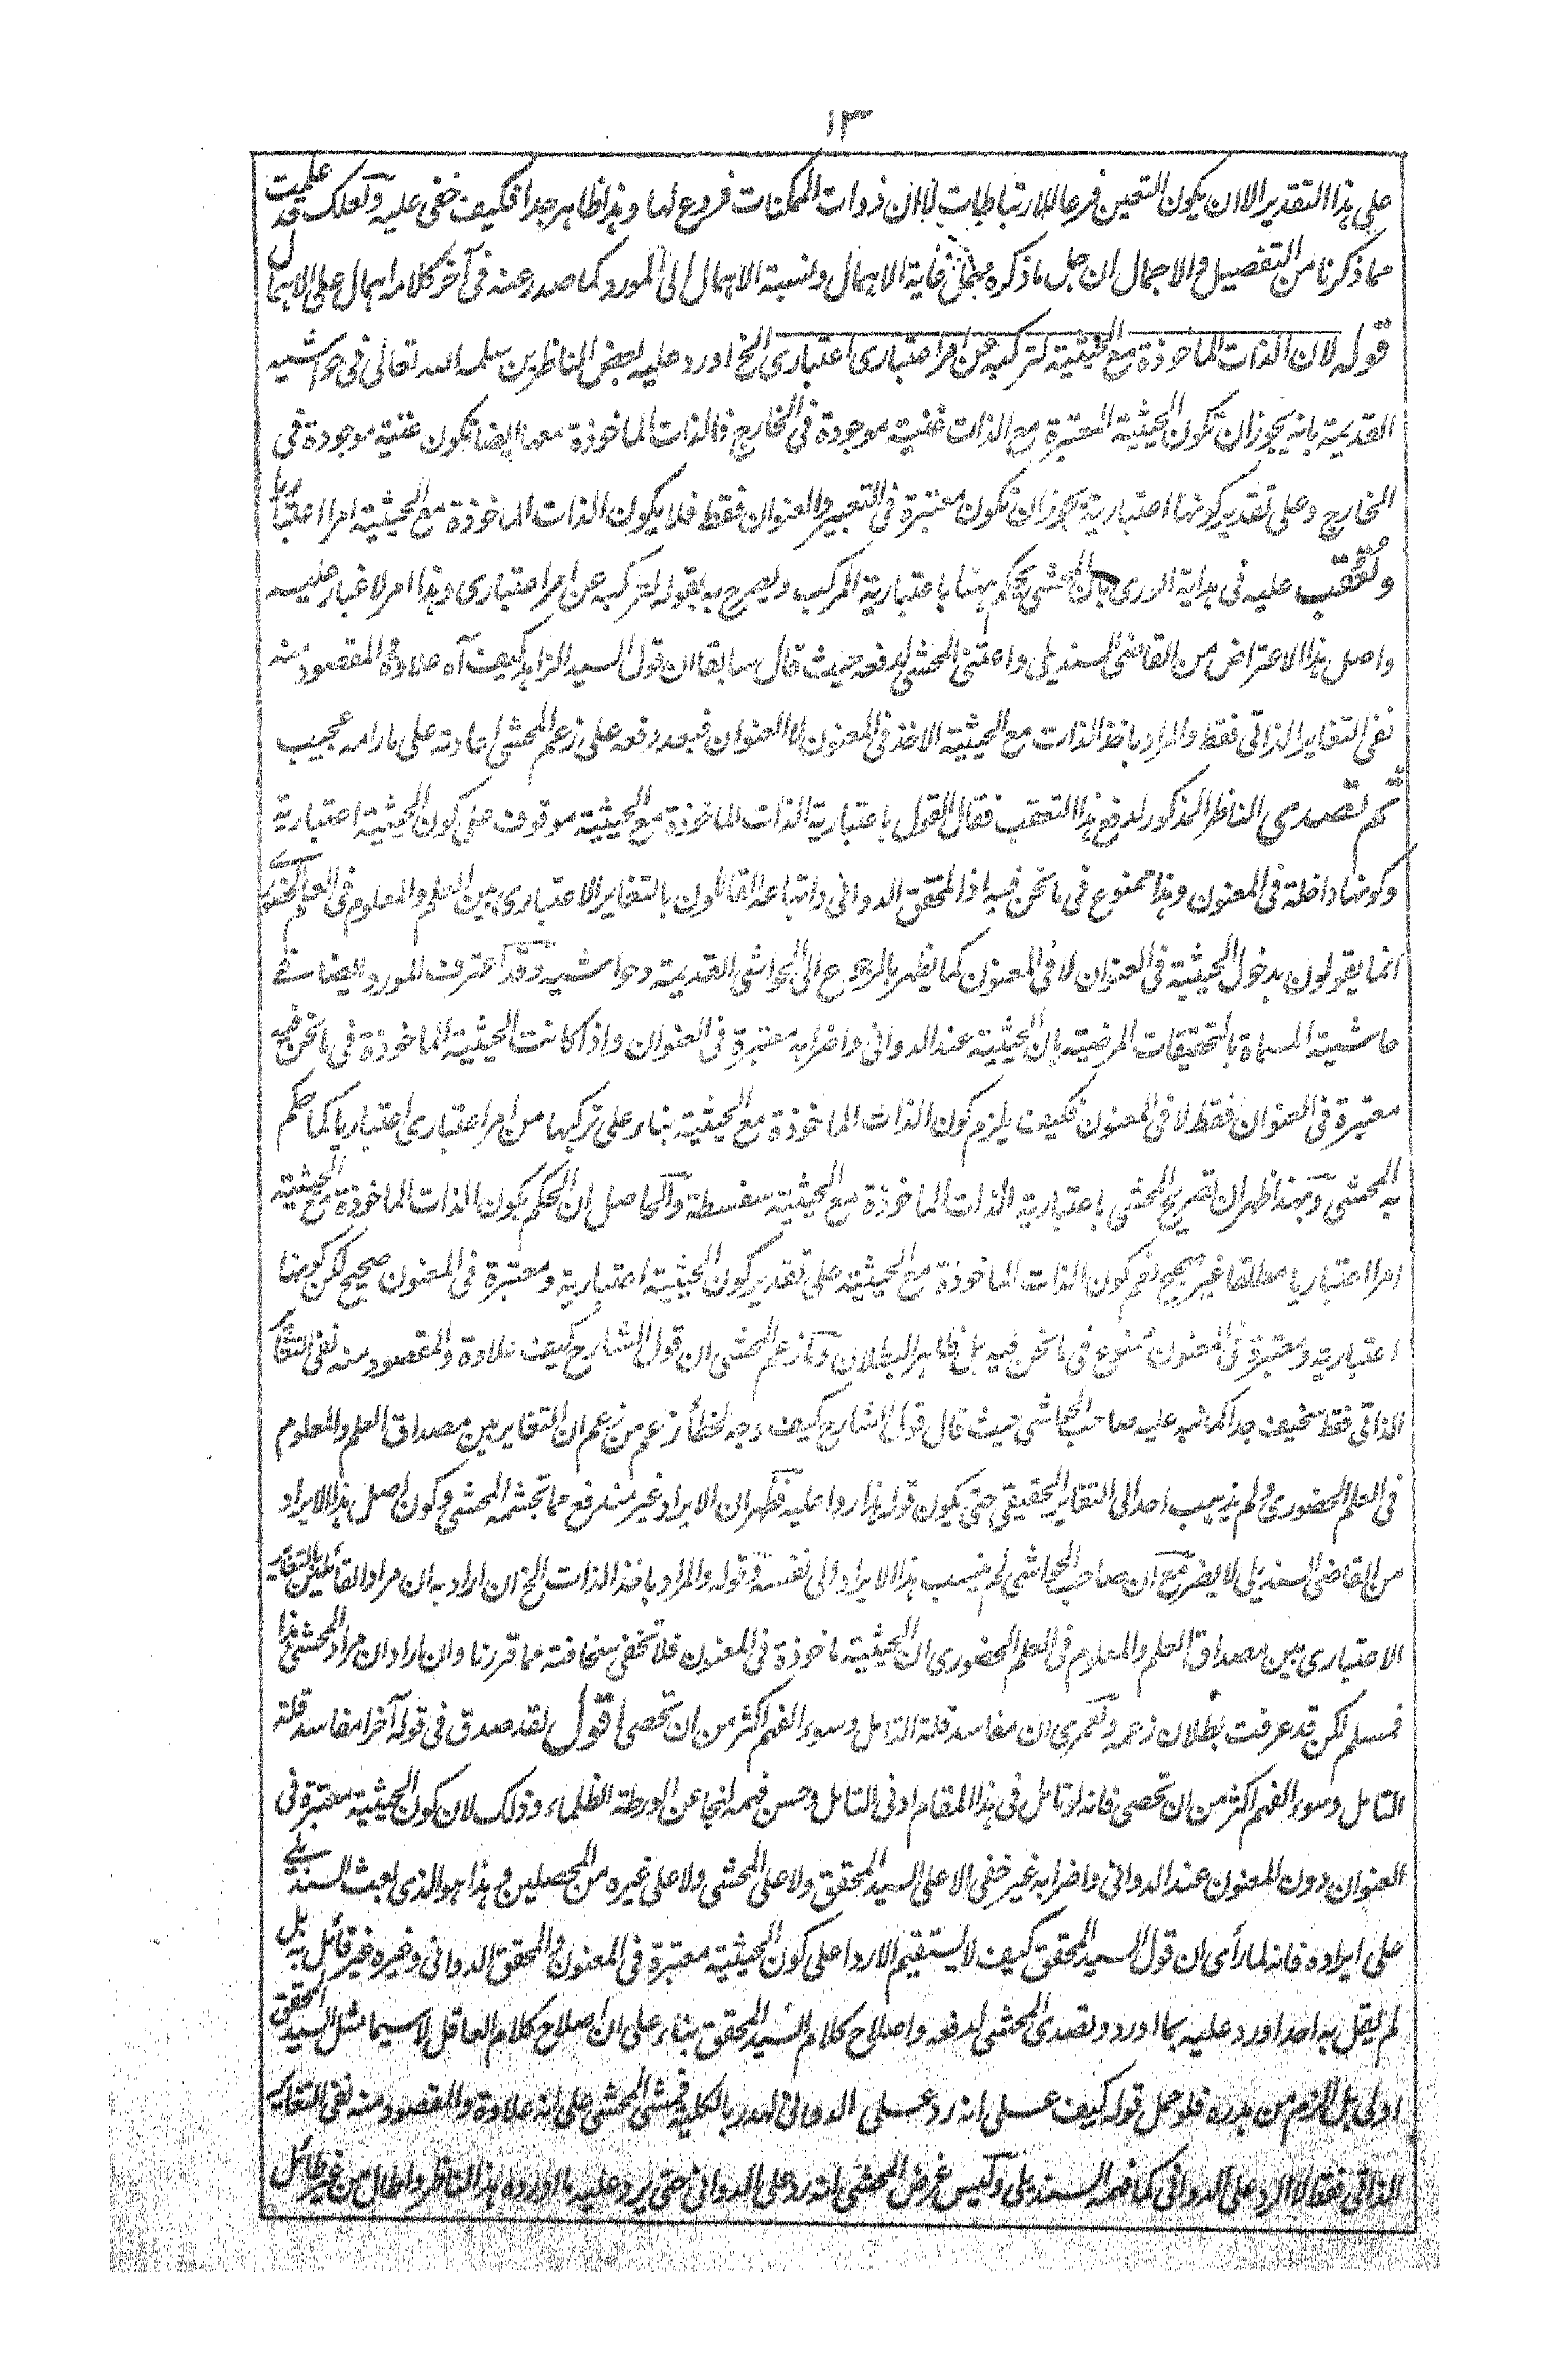 ١٣
على هذا التقدير الا ان يكون التعين فرعا للارتباطات لا ان ذوات الممكنات فروع لها وهذا ظاهر جدا فكيف خفى عليه ولعلك قد علمت
مما ذكرنا من التفصيل والاجمال ان جل ما ذكره مهمل غاية الاهمال ونسبة الاهمال الى المورد كما صدر عنه فى آخر كلامه اهمال على الاهمال
قوله لان الذات الماخوذة مع الحيثية لتركبه من امر اعتبارى اعتبارى الخ اورد عليه بعض الناظرين سلمه الله تعالى فى حواشيه
القديمة بانه يجوز ان تكون الحيثية المعتبرة مع الذات عينية موجودة فى الخارج فالذات الماخوذة معها ايضا تكون عينية موجودة فى
الخارج وعلى تقدير كونها اعتبارية يجوز ان تكون معتبرة فى التعبير والعنوان فقط فلا يكون الذات الماخوذة مع الحيثية امرا اعتباريا
وتعقب عليه فى هداية الورى بان المحشى يحكم ههنا باعتبارية المركب ويصرح به بقوله لتركبه عن امر اعتبارى وهذا امر لا غبار عليه
واصل هذا الاعتراض من القاضى السنديلى واعتنى المحشى لدفعه حيث قال سابقا ان قول السيد الزاهد كيف آه علاوة والمقصود منه
نفى التغاير الذاتى فقط والمراد باخذ الذات مع الحيثية الاخذ فى المعنون لا العنوان فبعد دفعه على زعم المحشى اعادته على ما رامه عجيب
ثم تصدى الناظر المذكور لدفع هذا التعقب فقال القول باعتبارية الذات الماخوذة مع الحيثية موقوف على كون الحيثية اعتبارية
وكونها داخلة فى المعنون وهذا ممنوع فى ما نحن فيه اذ المحقق الدوانى واتباعه القائلون بالتغاير الاعتبارى بين العلم والمعلوم فى العلم الحضورى
انما يقولون بدخول الحيثية فى العنوان لا فى المعنون كما يظهر بالرجوع الى الحواشى القديمة وحواشيه وقد اعترف المورد ايضا فى
حاشيته المسماة بالتحقيقات المرضية بان الحيثية عند الدوانى واضرابه معتبرة فى العنوان واذا كانت الحيثية الماخوذة فى ما نحن فيه
معتبرة فى العنوان فقط لا فى المعنون فكيف يلزم كون الذات الماخوذة مع الحيثية بناء على تركبها من امر اعتبارى اعتباريا كما حكم
به المحشى وبهذا ظهر ان تصريح المحشى باعتبارية الذات الماخوذة مع الحيثية سفسطة والحاصل ان الحكم بكون الذات الماخوذة مع الحيثية
امرا اعتباريا مطلقا غير صحيح نعم كون الذات الماخوذة مع الحيثية على تقدير كون الحيثية اعتبارية ومعتبرة فى المعنون صحيح لكن كونها
اعتبارية ومعتبرة فى المعنون ممنوع فى ما نحن فيه بل ظاهر البطلان وما زعم المحشى ان قول الشارح كيف علاوة والمقصود منه نفى التغاير
الذاتى فقط سخيف جدا كما نبه عليه صاحب الحواشى حيث قال قول الشارح كيف وجه لخطأ زعم من زعم ان التغاير بين مصداق العلم والمعلوم
فى العلم الحضورى ولم يذهب احد الى التغاير الحقيقى حتى يكون قوله هذا ردا عليه فظهر ان الايراد غير مندفع مما تجشمه المحشى وكون اصل هذا الايراد
من القاضى السنديلى لا يضر مع ان صاحب الحواشى لم ينسب هذا الايراد الى نفسه وقوله والمراد باخذ الذات الخ ان اراد به ان مراد القائلين بالتغاير
الاعتبارى بين مصداق العلم والمعلوم فى العلم الحضورى ان الحيثية ماخوذة فى المعنون فلا تخفى سخافته مما قررنا وان اراد ان مراد المحشى هذا
فمسلم لكن قد عرفت بطلان زعمه ولعمرى ان مفاسد قلة التامل وسوء الفهم اكثر من ان تحصى اقول لقد صدق فى قوله آخرا مفاسد قلة
التامل وسوء الفهم اكثر من ان تحصى فانه لو تامل فى هذا المقام ادنى التامل وحسن فهمه لنجا عن الورطة الظلماء وذلك لان كون الحيثية معتبرة فى
العنوان دون المعنون عند الدوانى واضرابه غير خفى لا على السيد المحقق ولا على المحشى ولا على غيره من المحصلين وهذا هو الذى لعبث السنديلى
على ايراده فانه لما رأى ان قول السيد المحقق كيف لا يستقيم الا ردا على كون الحيثية معتبرة فى المعنون والمحقق الدوانى وغيره غير قائل به بل
لم يقل به احد اورد عليه بما اورد وتصدى المحشى لدفعه واصلاح كلام السيد المحقق بناء على ان اصلاح كلام العاقل لا سيما مثل السيد المحقق
اولى بل الزم من هدره فلو حمل قوله كيف على انه رد على الدوانى لهدر بالكلية فمشى المحشى على انه علاوة والمقصود منه نفى التغاير
الذاتى فقط لا الرد على الدوانى كما فهمه السنديلى وليس غرض المحشى انه رد على الدوانى حتى يرد عليه ما اورده هذا الناظر واطال من غير طائل